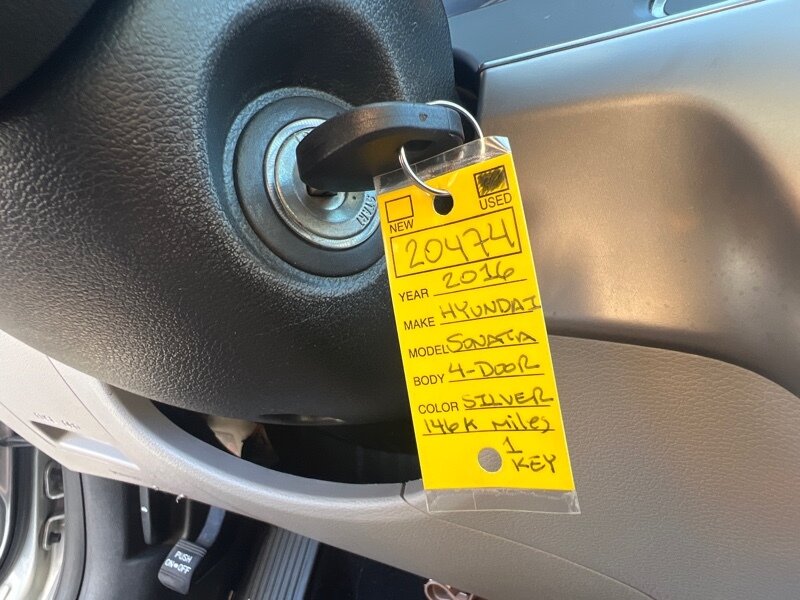 START
NEW USED
20474
YEAR 2016
MAKE HYUNDAI
MODEL SONATA
BODY 4-DOOR
COLOR SILVER
146K Miles
1
KEY
PUSH
ON•OFF